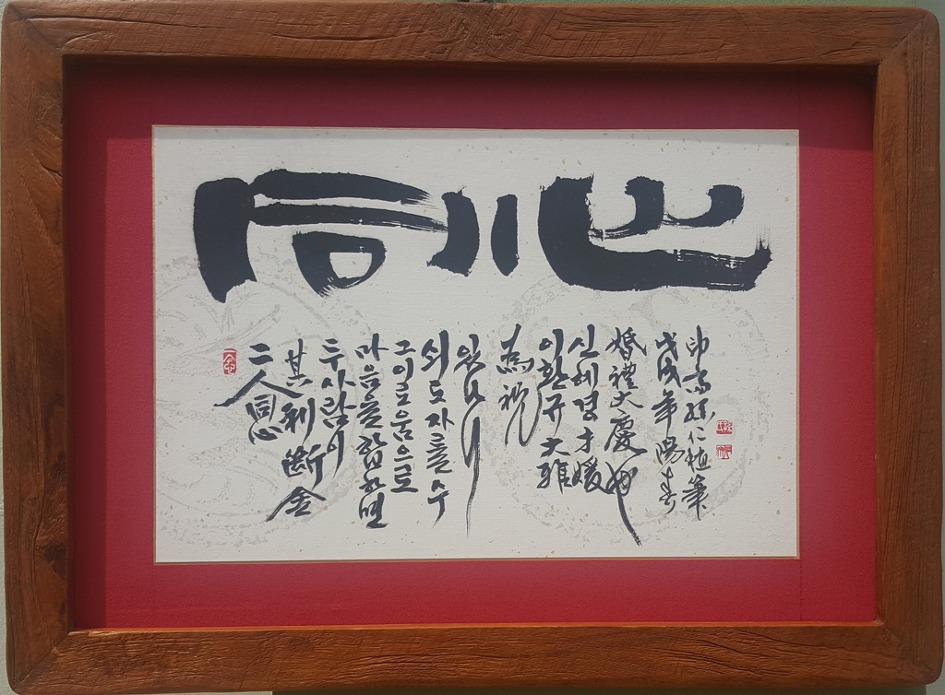 同心
二人同心
其利斷金
두 사람이
마음을 합하면
그 이로움으로
쇠도 자를 수
있나니
為祝
이환규 大雅
신혜경 才媛
婚禮大慶
戊戌年 陽春
孫仁植 筆